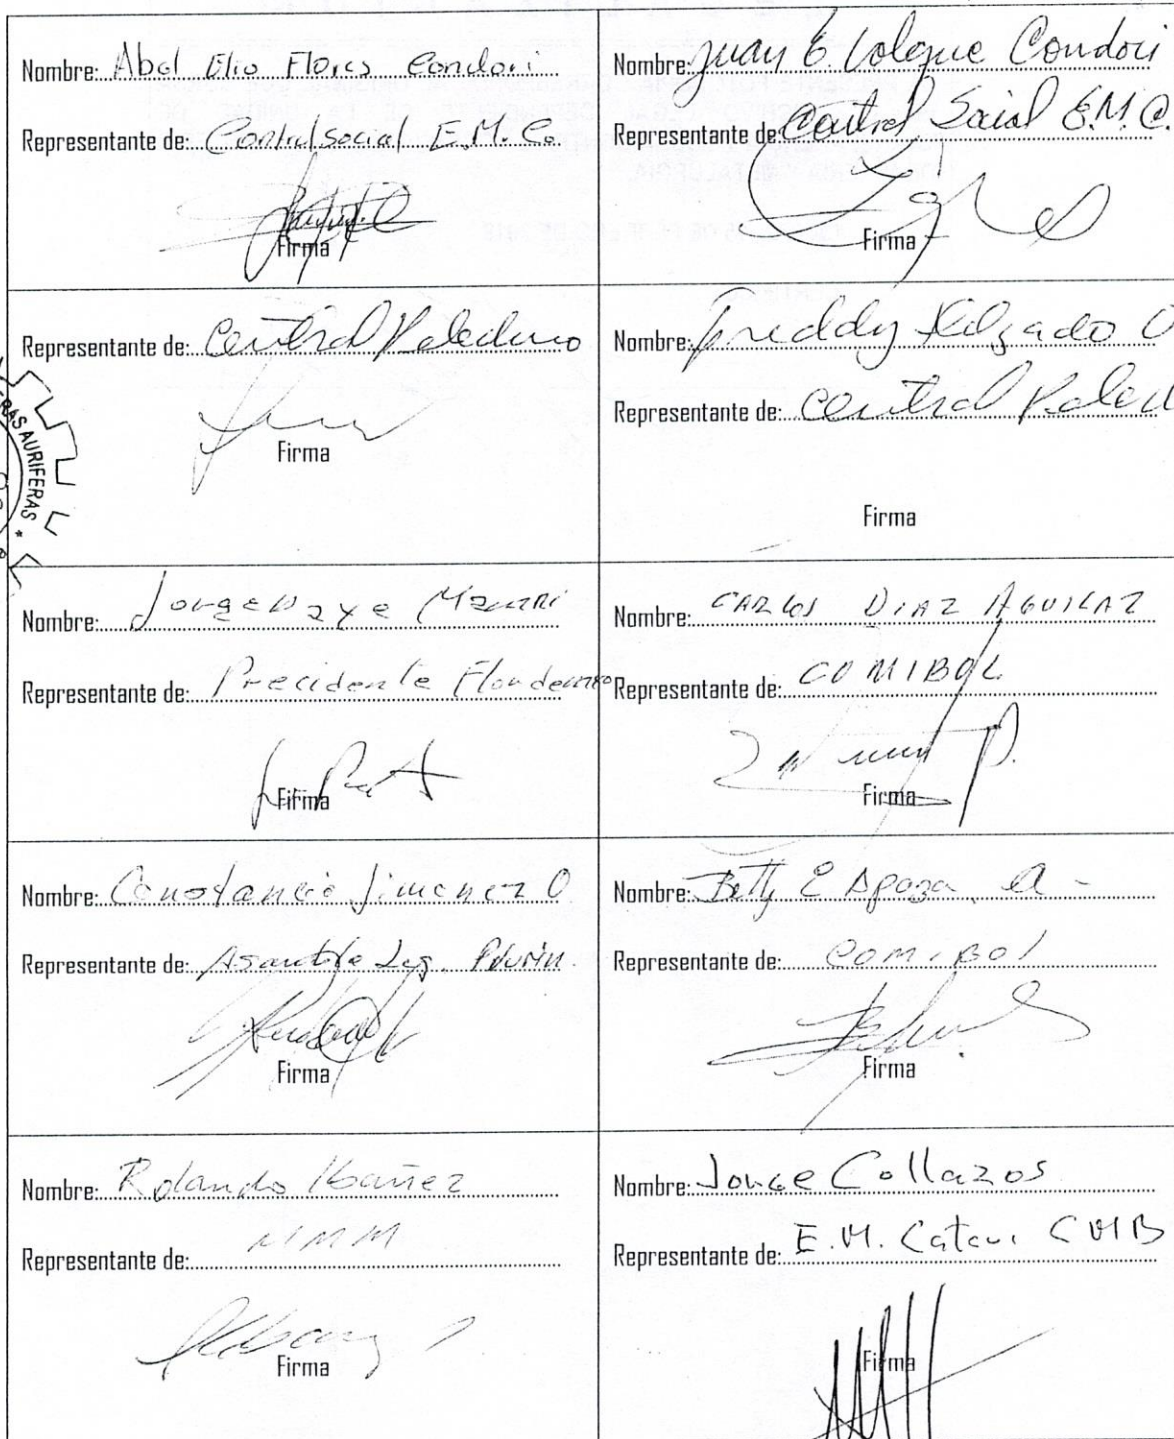 Nombre: Abel Elio Flores Condori
Representante de: Control social E.M.Co.
Firma
Nombre: Juan E. Colque Condori
Representante de: Control Social E.M.C.
Firma
Representante de: Central
Firma
Nombre: Freddy
Representante de: Central
Firma
RAS AURIFERAS *
Nombre: Jorge
Representante de: Precidente
Firma
Nombre: CARLOS DIAZ AGUILAR
Representante de: COMIBOL
Firma
Nombre: Constancio Jimenez O
Representante de: Leg.
Firma
Nombre: Betty E Apaza A-
Representante de: COMIBOL
Firma
Nombre: Rolando Ibañez
Representante de: MMM
Firma
Nombre: Jorge Collazos
Representante de: E.M. Catavi CMB
Firma